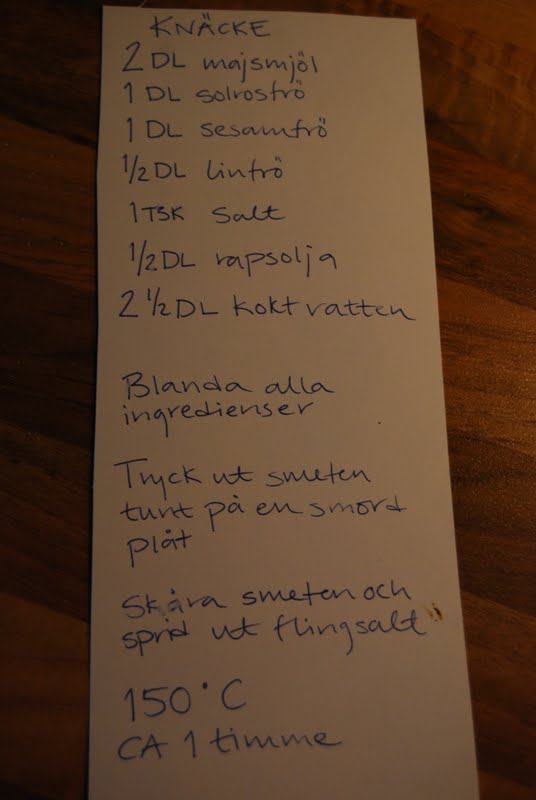 KNÄCKE
2 DL majsmjöl
1 DL solrosfrö
1 DL sesamfrö
1/2 DL linfrö
1 TSK salt
1/2 DL rapsolja
2 1/2 DL kokt vatten
Blanda alla
ingredienser
Tryck ut smeten
tunt på en smord
plåt
Skåra smeten och
sprid ut flingsalt
150°C
CA 1 timme